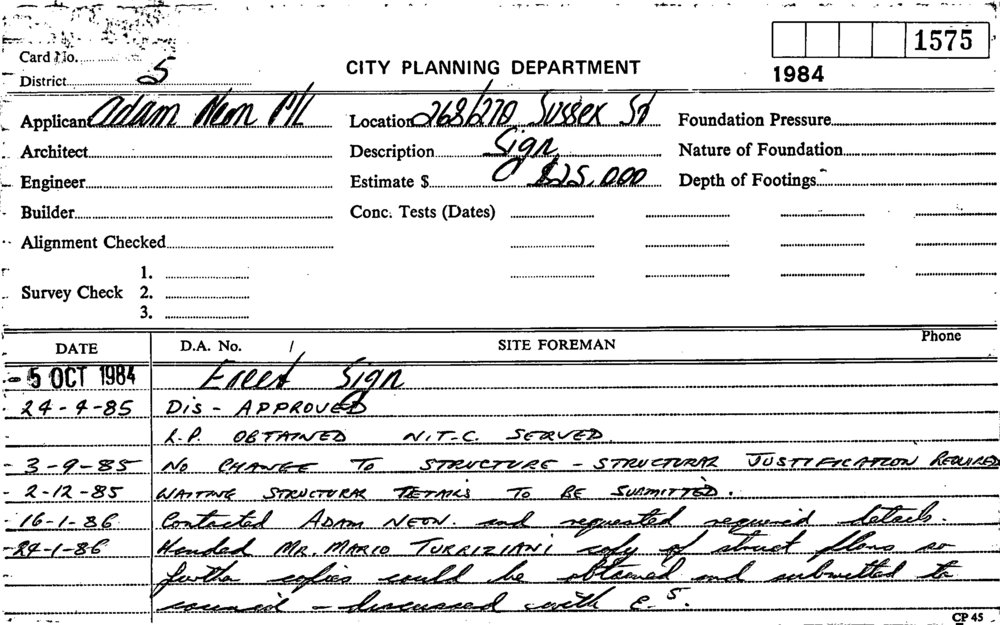 Card No.
1575
District 5
CITY PLANNING DEPARTMENT
1984
Applicant Adam Neon P/L
Location 268/270 Sussex St
Foundation Pressure
Architect
Description Sign
Nature of Foundation
Engineer
Estimate $ $25,000
Depth of Footings
Builder
Conc. Tests (Dates)
Alignment Checked
Survey Check
1.
2.
3.
DATE
D.A. No. /
SITE FOREMAN
Phone
- 5 OCT 1984 Erect Sign
24-4-85 DIS - APPROVED
L.P. OBTAINED N.T.C. SERVED.
3-9-85 NO CHANGE TO STRUCTURE - STRUCTURAL JUSTIFICATION REQUIRED
2-12-85 WAITING STRUCTURAL DETAILS TO BE SUBMITTED.
16-1-86 Contacted ADAM NEON. and requested required details.
24-1-86 Handed MR. MARIO TURRIZIANI copy of struct plans so
further copies could be obtained and submitted to
council - discussed with E.S.
CP 45